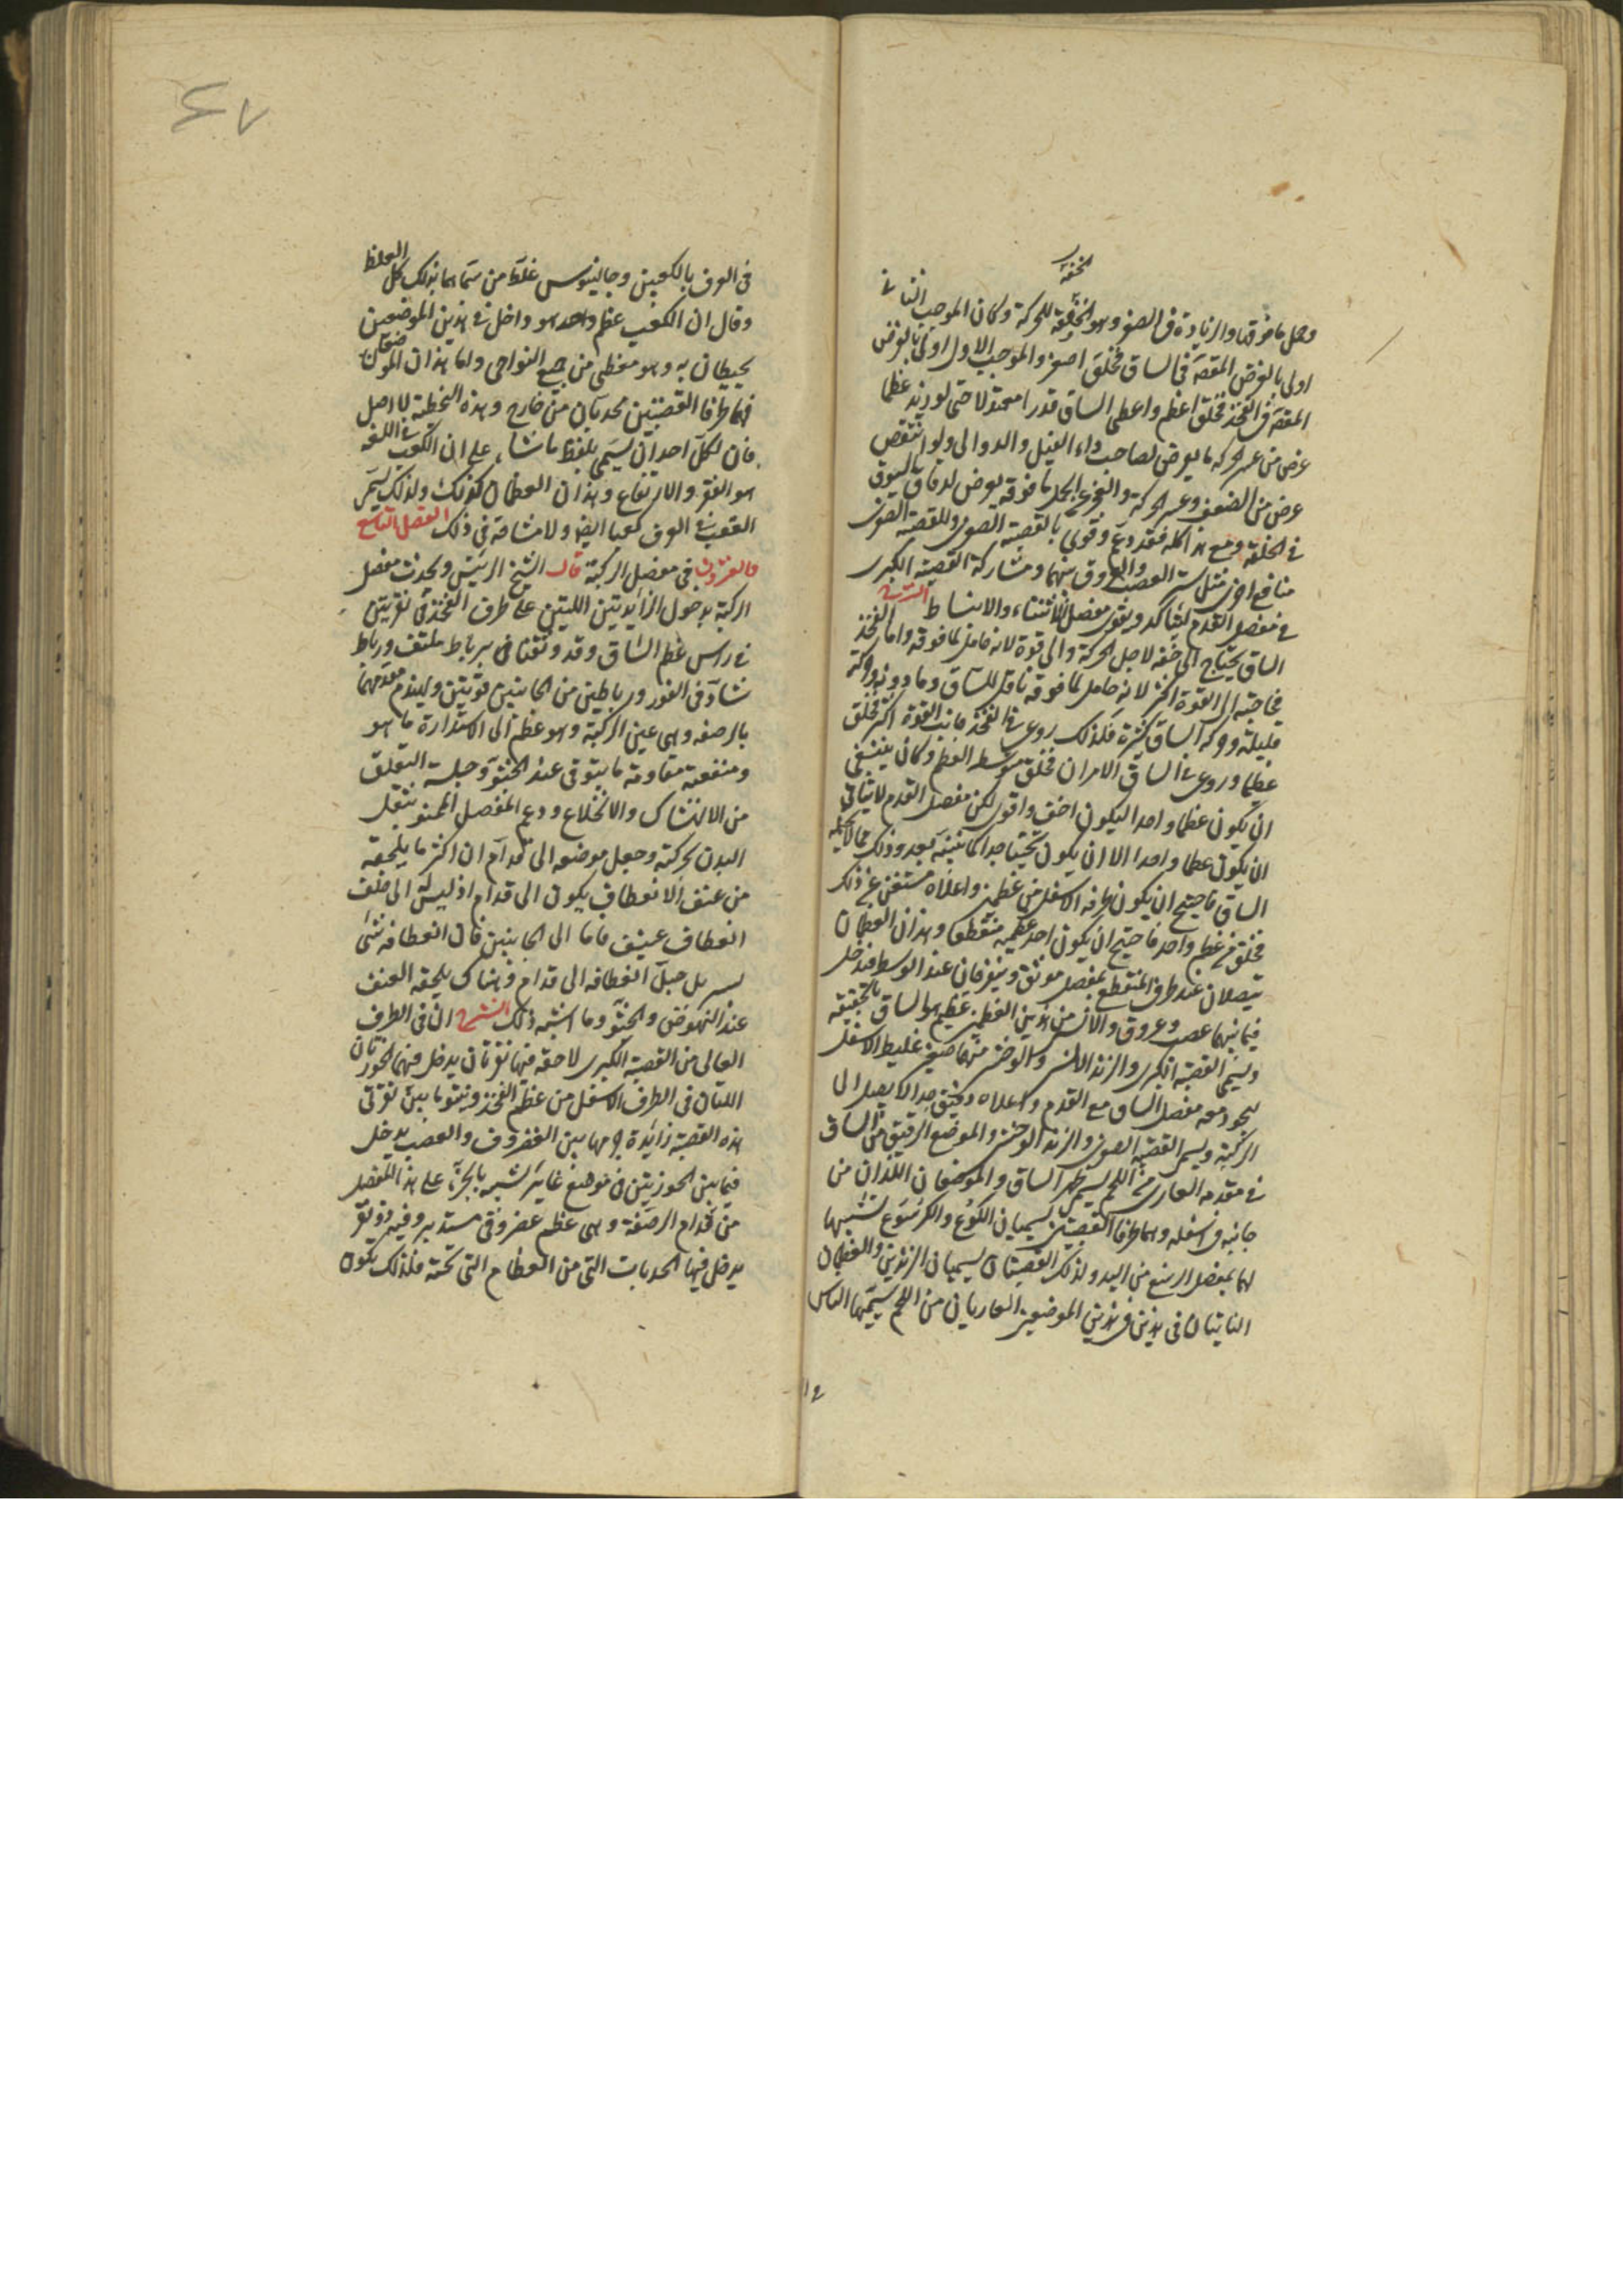 الخفة
وحمل ما فوقه والزيادة فى الصغر وهو الخفة للحركة وكان الموجب الثانى
اولى بالغرض المقصود فى الساق فخلق اصغر والموجب الاول اولى بالغرض
المقصود فى الفخذ فخلق اعظم واعطى الساق قدرا معتدلا حتى لو زيد عظما
عرض من عسر الحركة ما يعرض لصاحب داء الفيل والدوالى ولو انتقص
عرض من الضعف وعسر الحركة والعجز عن حمل ما فوقه ما يعرض لدقاق السوق
فى الخلقة ومع هذا كله فقد دعم وقوى بالقصبة الصغرى وللقصبة الصغرى
منافع اخرى مثل ستر العصب والعروق بينهما ومشاركة القصبة الكبرى
فى مفصل القدم ليتاكد ويقوى مفصل الانثناء والانبساط الشرح
الساق يحتاج الى خفة لاجل الحركة والى قوة لانه حامل لما فوقه واما الفخذ
فحاجته الى القوة اكثر لانه حامل لما فوقه ناقل للساق وما دونه وحركته
قليلة وحركة الساق كثيرة فلذلك روعى فى الفخذ جانب القوة اكثر فخلق
عظيما وروعى فى الساق الامران فخلق متوسط العظم وكان ينبغى
ان يكون عظما واحدا ليكون اخف واقوى لكن مفصل القدم لا يتاتى
ان يكون عظما واحدا الا ان يكون ثخينا جدا كما نبينه بعد وذلك مما لا يحتمله
الساق فاحتيج ان يكون طرفه الاسفل من عظمين واعلاه مستغنى عن ذلك
فخلق من عظم واحد فاحتيج ان يكون احد عظميه منقطعا وهذان العظمان
يتصلان عند طرف المنقطع بمفصل موثق ويتفرقان عند الوسط فيدخل
فيما بينهما عصب وعروق والانسى من هذين العظمين عظيم هو الساق بالحقيقة
ويسمى القصبة الكبرى والزند الانسى والوحشى منهما صغير غليظ الاسفل
ليجود معه مفصل الساق مع القدم واعلاه دقيق جدا لا يصل الى
الركبة ويسمى القصبة الصغرى والزند الوحشى والموضع الرقيق من الساق
فى مقدمه العارى من اللحم يسمى ظهر الساق والموضعان اللذان من
جانبه فى اسفله وهما طرفا القصبتين يسميان الكوع والكرسوع لشبهها
لهما بمفصل الرسغ من اليد ولذلك القصبتان يسميان الزندين والعظمان
الناتيان فى هذين الموضعين العاريان من اللحم يسميها الناس
فى العرف بالكعبين وجالينوس غلط من سماهما بذلك كل الغلظ
وقال ان الكعب عظم واحد هو داخل فى هذين الموضعين
يحيطان به وهو مغطى من جميع النواحى واما هذان الموضعان
فهما طرفا القصبتين محدبان من خارج وهذه التخطئة لا اصل
فان لكل احد ان يسمى بلفظ ما شاء على ان الكعب فى اللغة
هو النتو والارتفاع وهذان العظمان كذلك ولذلك يسمى
العقب فى العرف كعبا ايضا ولا مشاحة فى ذلك الفصل التاسع
والعشرون فى مفصل الركبة قال الشيخ الرئيس ويحدث مفصل
الركبة بدخول الزايدتين اللتين على طرف الفخذ فى نقرتين
فى راس عظم الساق وقد وثقتا برباط ملتف ورباط
شاد فى الغور ورباطين من الجانبين قويتين وليندم مقدمهما
بالرضفه وهى عين الركبة وهو عظم الى الاستدارة ما هو
ومنفعته مقاومة ما يتوقى عند الجثو وجلسة التعلق
من الانهتاك والانخلاع ودعم المفصل الممنو بثقل
البدن بحركته وجعل موضعه الى قدام ان اكثر ما يلحقه
من عنف الانعطاف يكون الى قدام اذ ليس له الى خلف
انعطاف عنيف فاما الى الجانبين فان انعطافه شئ
يسير بل جل انعطافه الى قدام وهناك يلحقه العنف
عند النهوض والجثو وما اشبه ذلك الشرح ان فى الطرف
العالى من القصبة الكبرى لاحقة فيها نقرتان يدخل فيهما الجوزتان
اللتان فى الطرف الاسفل من عظم الفخذ وينتو ما بين نقرتى
هذه القصبة زايدة فيما بين الغضروف والعصب يدخل
فيما بين الجوزتين فى موضع غاير شبيه بالحز على هذا المفصل
من قدام الرضفة وهى عظم غضروفى مستدير وفيه نقر
يدخل فيها الحدبات التى من العظام التى تحته فلذلك يكون
٤٧